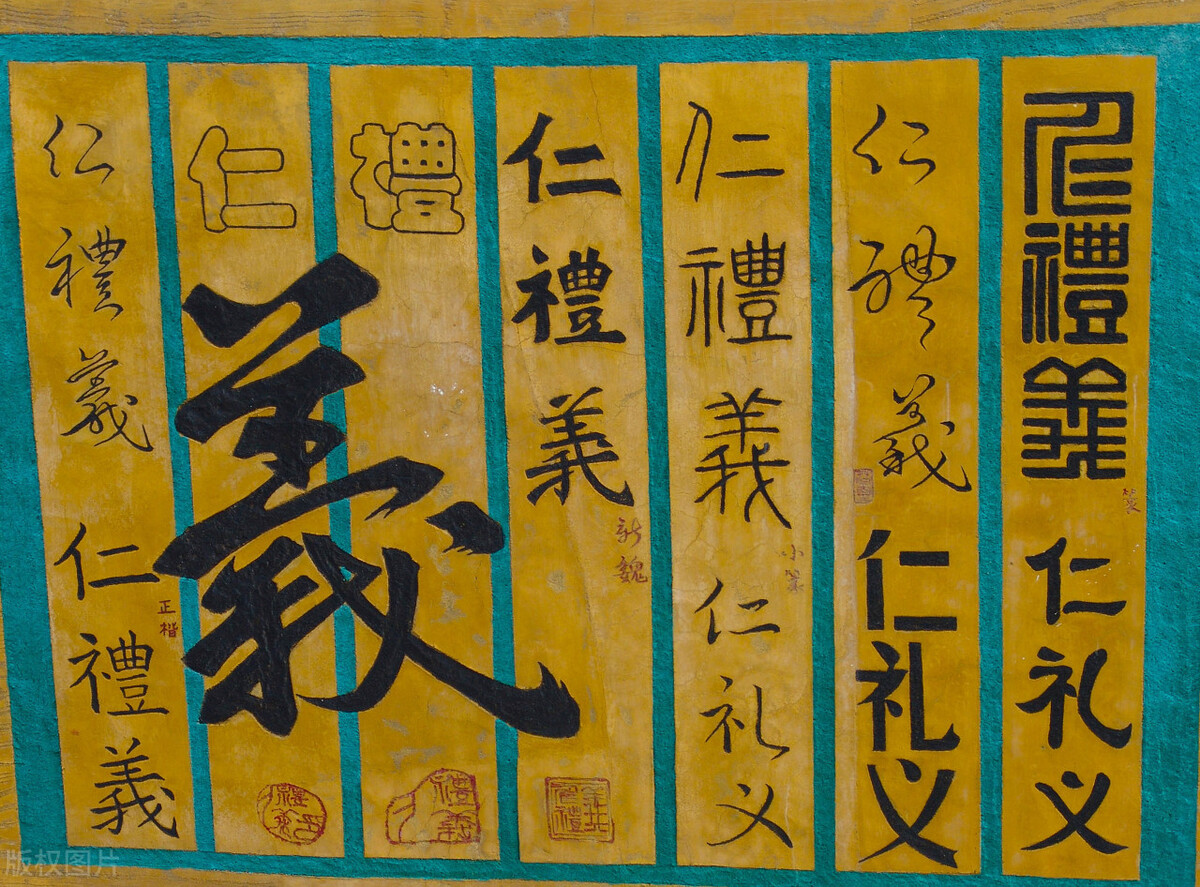 仁禮義
篆
仁礼义
仁禮義
仁礼义
仁禮義
小篆
仁礼义
仁禮義
新魏
禮
禮義
仁
義
仁禮義
仁禮義
正楷
仁禮義
版权图片